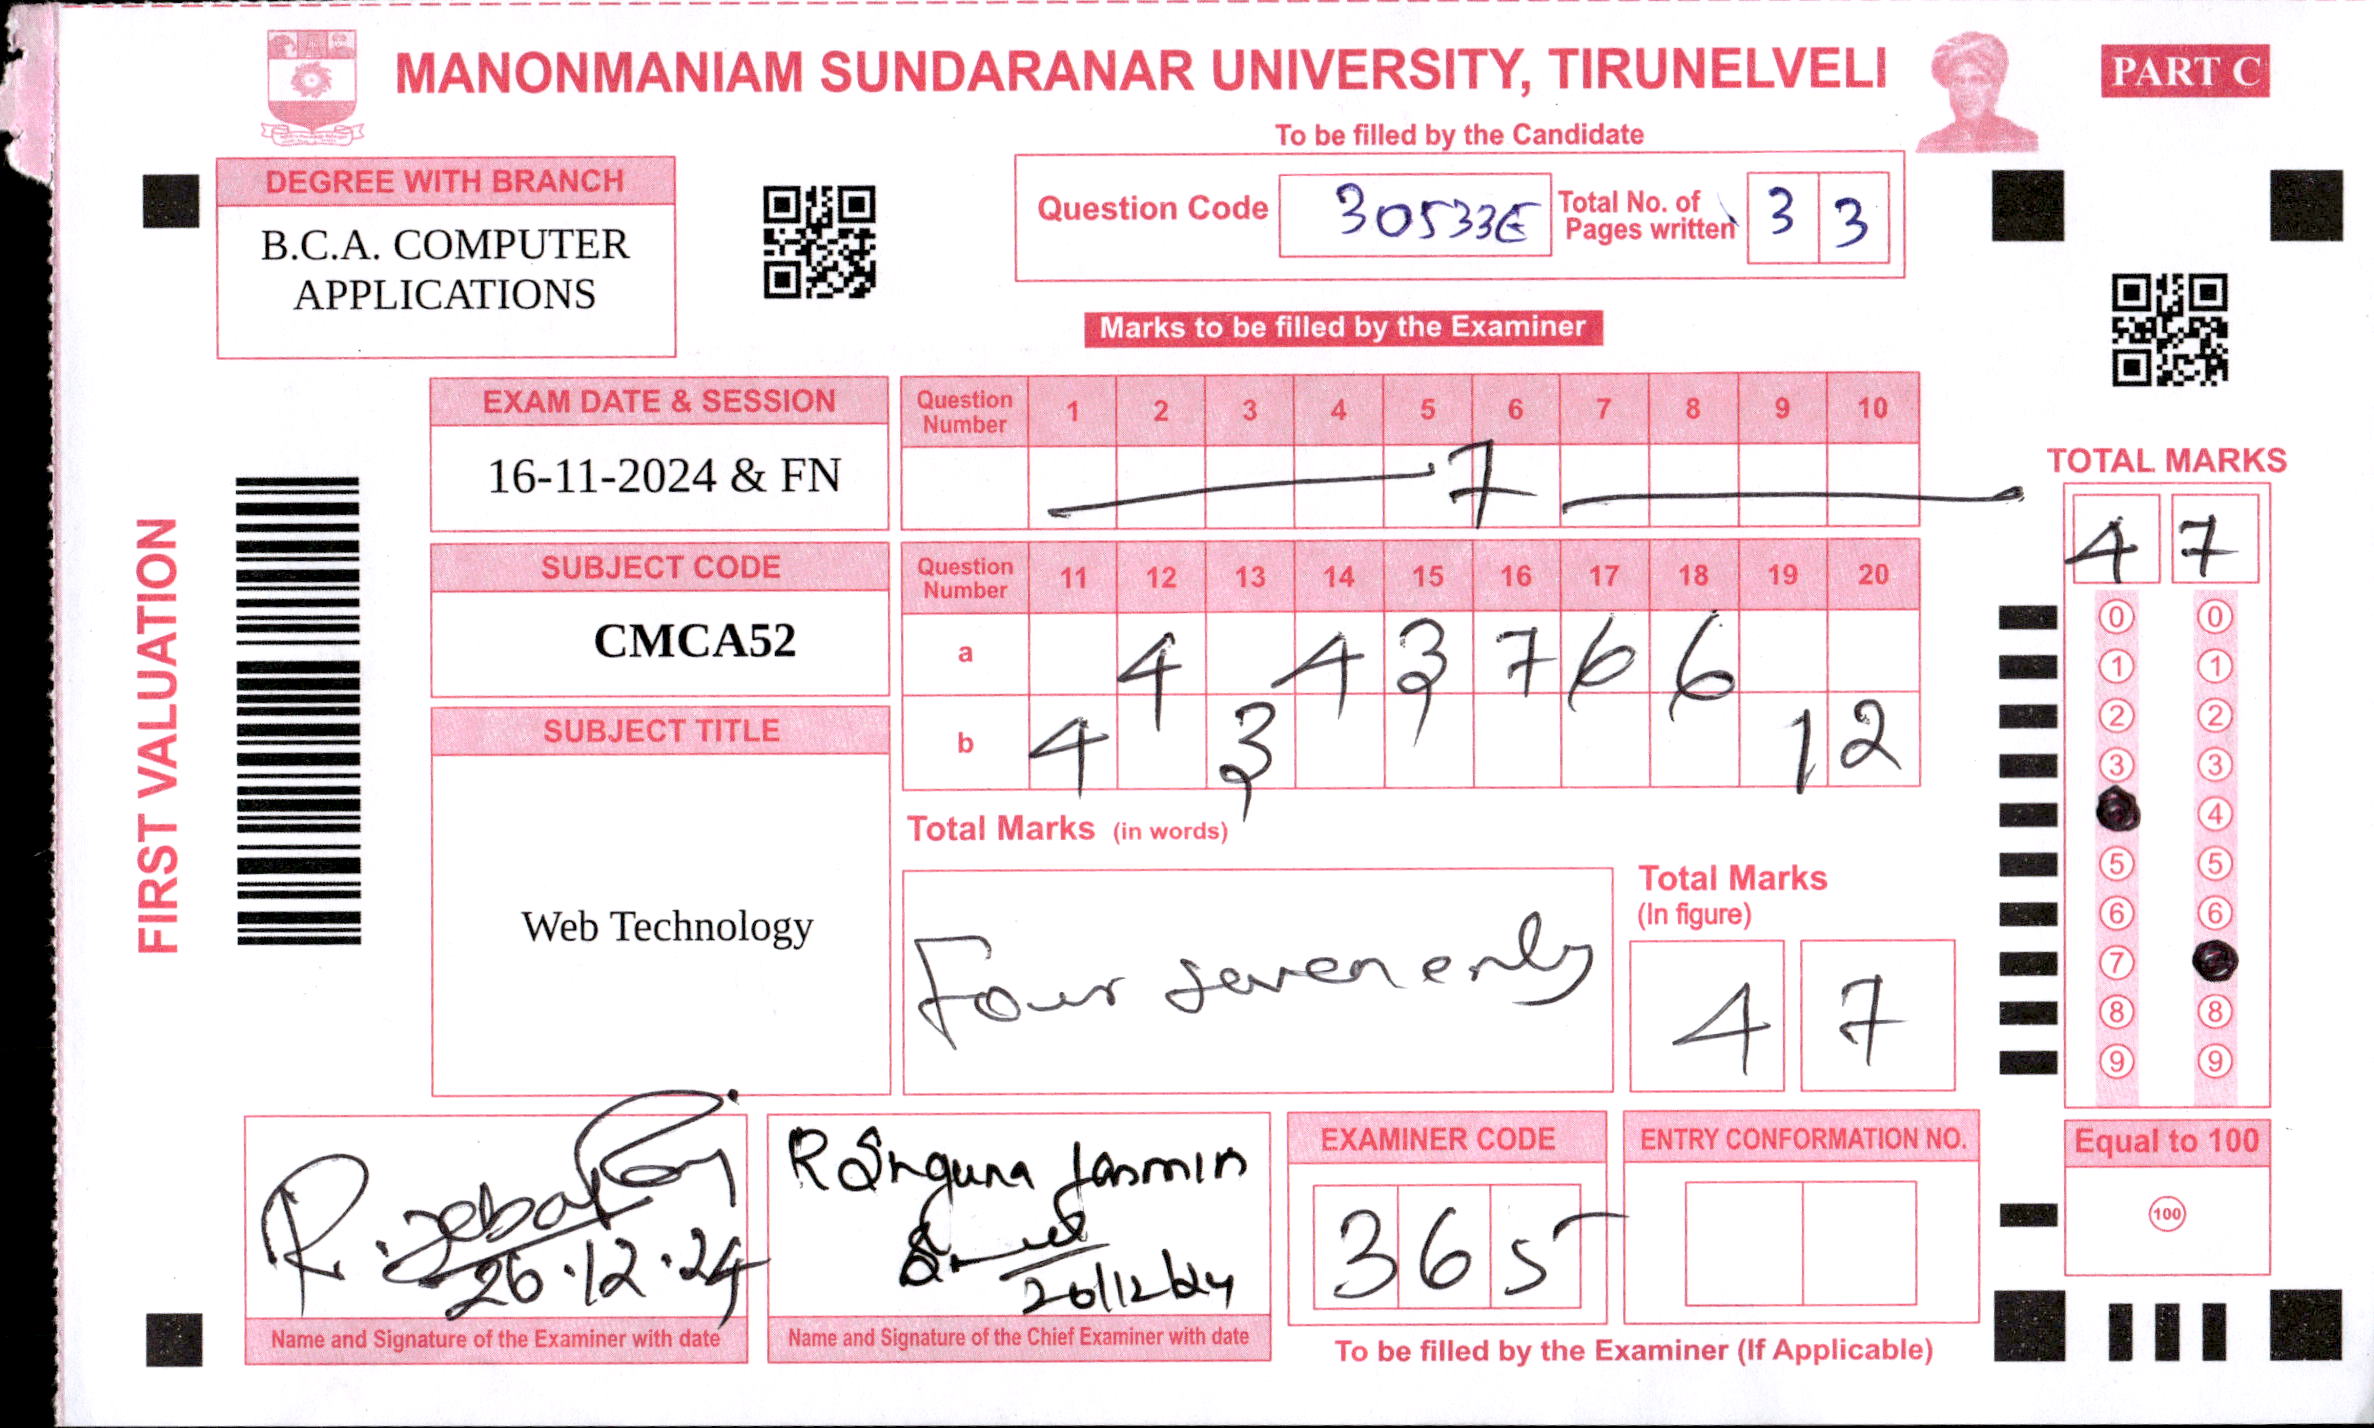 MANONMANIAM SUNDARANAR UNIVERSITY, TIRUNELVELI
PART C
To be filled by the Candidate
DEGREE WITH BRANCH
B.C.A. COMPUTER
APPLICATIONS
Question Code 30533E Total No. of Pages written 3 3
Marks to be filled by the Examiner
FIRST VALUATION
EXAM DATE & SESSION
16-11-2024 & FN
SUBJECT CODE
CMCA52
SUBJECT TITLE
Web Technology
Question Number 1 2 3 4 5 6 7 8 9 10
7
Question Number 11 12 13 14 15 16 17 18 19 20
a 4 4 3 7 6 6
b 4 3 1 2
Total Marks (in words)
Four seven only
Total Marks
(In figure)
4 7
TOTAL MARKS
4 7
0 0
1 1
2 2
3 3
4
5 5
6 6
7
8 8
9 9
Equal to 100
100
26.12.24
Name and Signature of the Examiner with date
Jasmin
26/12/24
Name and Signature of the Chief Examiner with date
EXAMINER CODE
3 6 5
ENTRY CONFORMATION NO.
To be filled by the Examiner (If Applicable)